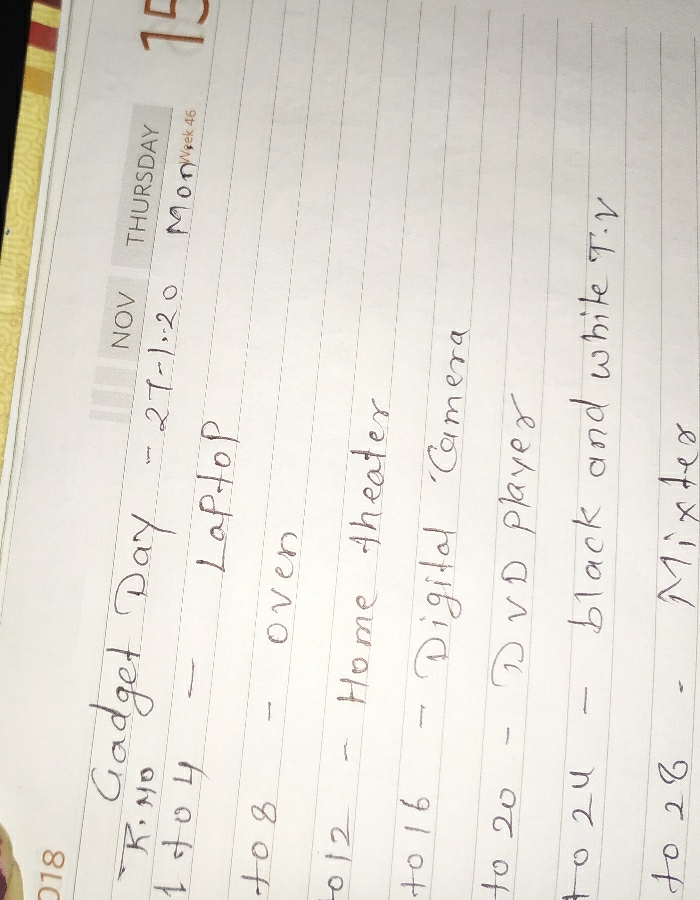 NOV THURSDAY 15
Week 46
Gadget Day - 27-1-20 Mon
R.No
1 to 4 - Laptop
to 8 - oven
to 12 - Home theater
to 16 - Digital Camera
to 20 - DVD player
to 24 - black and white T.V
to 28 - Mixter
018